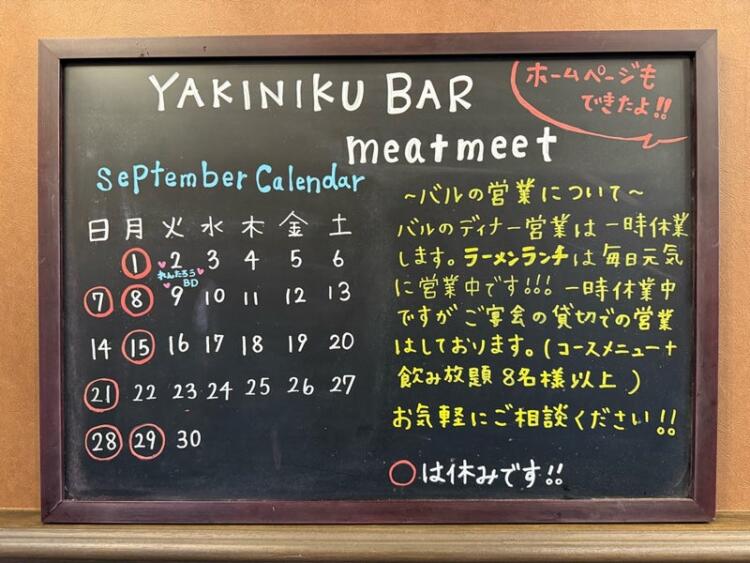 YAKINIKU BAR
meatmeet
ホームページも
できたよ!!
September Calendar
日 月 火 水 木 金 土
1 2 3 4 5 6
れんたろう
BD
7 8 9 10 11 12 13
14 15 16 17 18 19 20
21 22 23 24 25 26 27
28 29 30
~バルの営業について~
バルのディナー営業は一時休業
します。ラーメンランチは毎日元気
に営業中です!!! 一時休業中
ですがご宴会の貸切での営業
はしております。(コースメニュー+
飲み放題 8名様以上)
お気軽にご相談ください!!
○は休みです!!